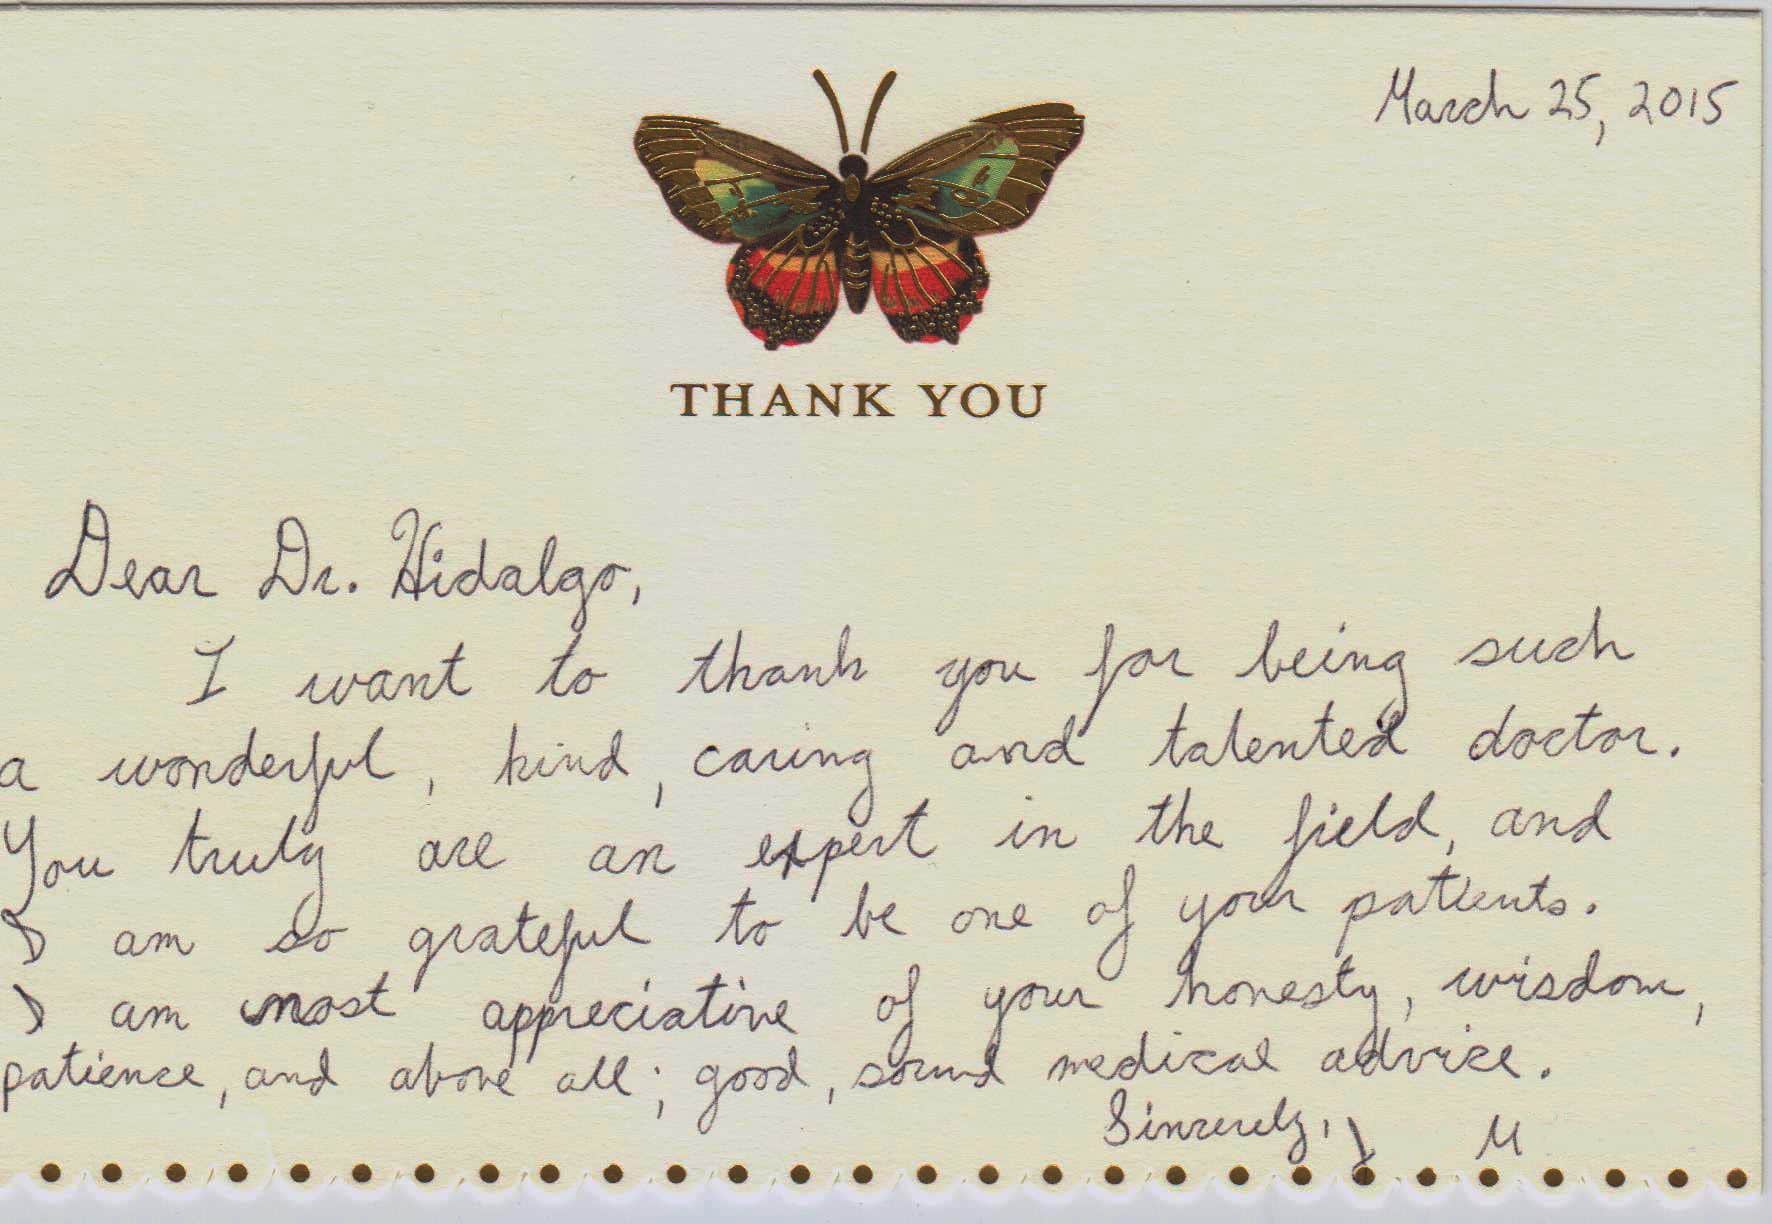 March 25, 2015
THANK YOU
Dear Dr. Hidalgo,
I want to thank you for being such
a wonderful, kind, caring and talented doctor.
You truly are an expert in the field, and
I am so grateful to be one of your patients.
I am most appreciative of your honesty, wisdom,
patience, and above all; good, sound medical advice.
Sincerely, J M